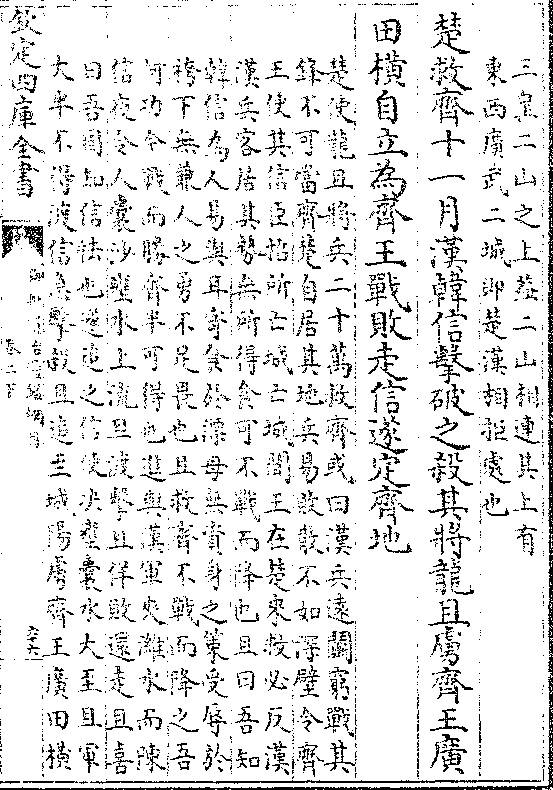 三皇二山之上葢二山相連其上有
東西廣武二城即楚漢相拒處也
楚救齊十一月漢韓信擊破之殺其將龍且虜齊王廣
田橫自立為齊王戰敗走信遂定齊地
楚使龍且將兵二十萬救齊或曰漢兵遠鬬窮戰其
鋒不可當齊楚自居其地兵易敗散不如深壁令齊
王使其信臣招所亡城亡城聞王在楚來救必反漢
漢兵客居其勢無所得食可不戰而降也且曰吾知
韓信為人易與耳寄食於漂母無資身之策受辱於
袴下無兼人之勇不足畏也且救齊不戰而降之吾
何功今戰而勝齊半可得也進與漢軍夾濰水而陳
信夜令人囊沙壅水上流旦渡擊且佯敗還走且喜
曰吾固知信怯也遂追之信使决壅囊水大至且軍
大半不得渡信急擊殺且追至城陽虜齊王廣田橫
欽定四庫全書
卷二下